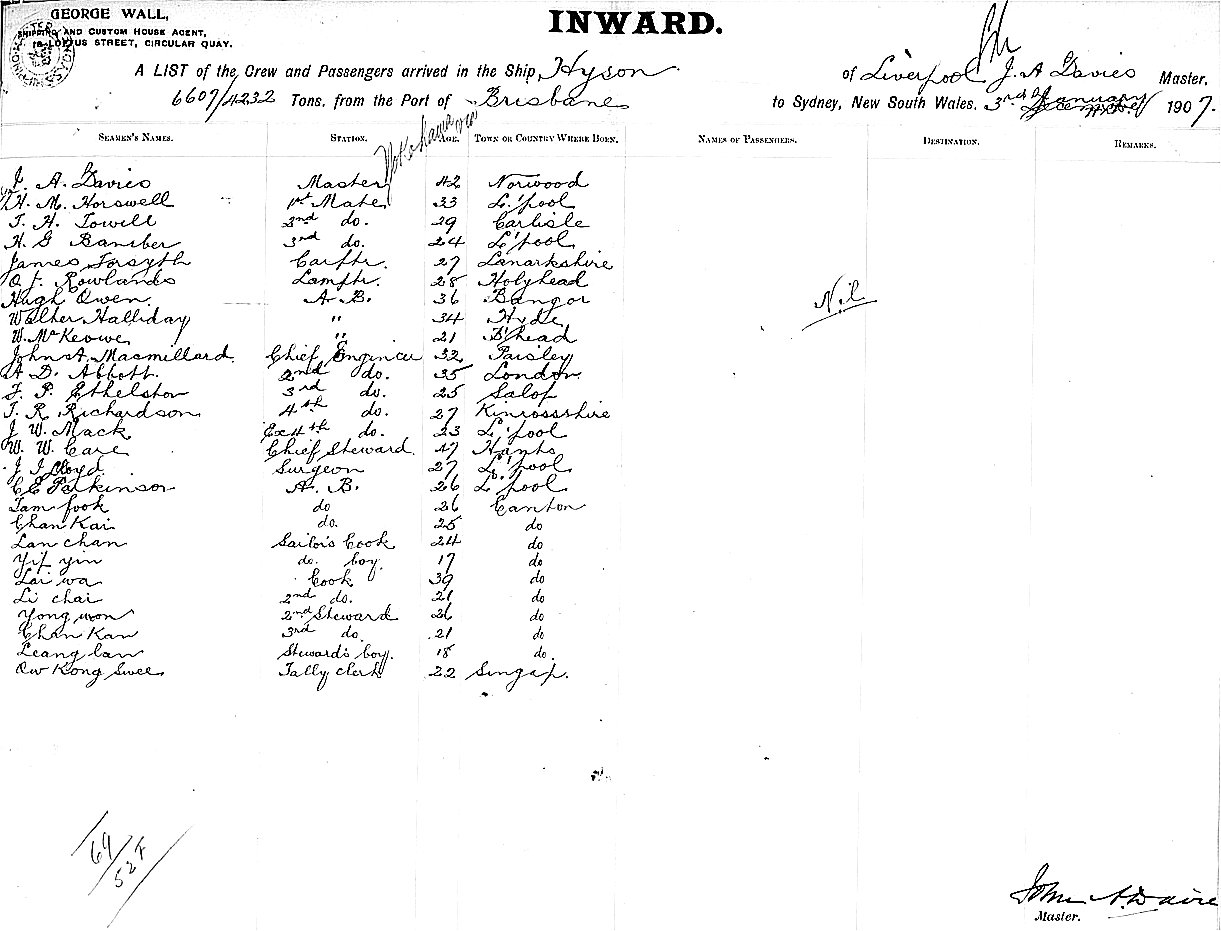 GEORGE WALL,
SHIPPING AND CUSTOM HOUSE AGENT,
LOFTUS STREET, CIRCULAR QUAY.
INWARD.
A LIST of the Crew and Passengers arrived in the Ship, Hyson of Liverpool J. A Davies Master,
6607/4232 Tons, from the Port of Brisbane to Sydney, New South Wales, 3rd January 1907.
Yokohama via
SEAMEN'S NAMES. STATION. AGE. TOWN OR COUNTRY WHERE BORN. NAMES OF PASSENGERS. DESTINATION. REMARKS.
J. A. Davies Master 42 Norwood
H. M. Horswell 1st Mate 33 L'pool
T. H. Towill 2nd do. 29 Carlisle
H. G Bamber 3rd do. 24 L'pool
James Forsyth Carptr. 27 Lanarkshire
O J. Rowlands Lamptr. 28 Holyhead
Hugh Owen. A. B. 36 Bangor
Nil
Walter Halliday " 34 Hyde
W. McKeowe " 21 B'head
John A. Macmillard. Chief Engineer 32 Paisley
A D. Abbott. 2nd do. 35 London
F. P. Ethelston 3rd do. 25 Salop
T. R. Richardson 4th do. 27 Kinrossshire
J. W. Mack Ex 4th do. 23 L'pool
W. W. Care Chief Steward. 47 Hants
J J Lloyd Surgeon 27 L'pool
C E Parkinson A. B. 26 L'pool
Tam fook do 26 Canton
Chan Kai do. 25 do
Lan chan Sailor's Cook 24 do
Yif yin do. boy. 17 do
Lai wa Cook 39 do
Li chai 2nd do. 21 do
Yong won 2nd Steward 26 do
Chan Kan 3rd do. 21 do
Leang lan Steward's boy. 18 do.
Ow Kong Swee Tally clerk 22 Singap.
69/52 F
John A. Davies
Master.